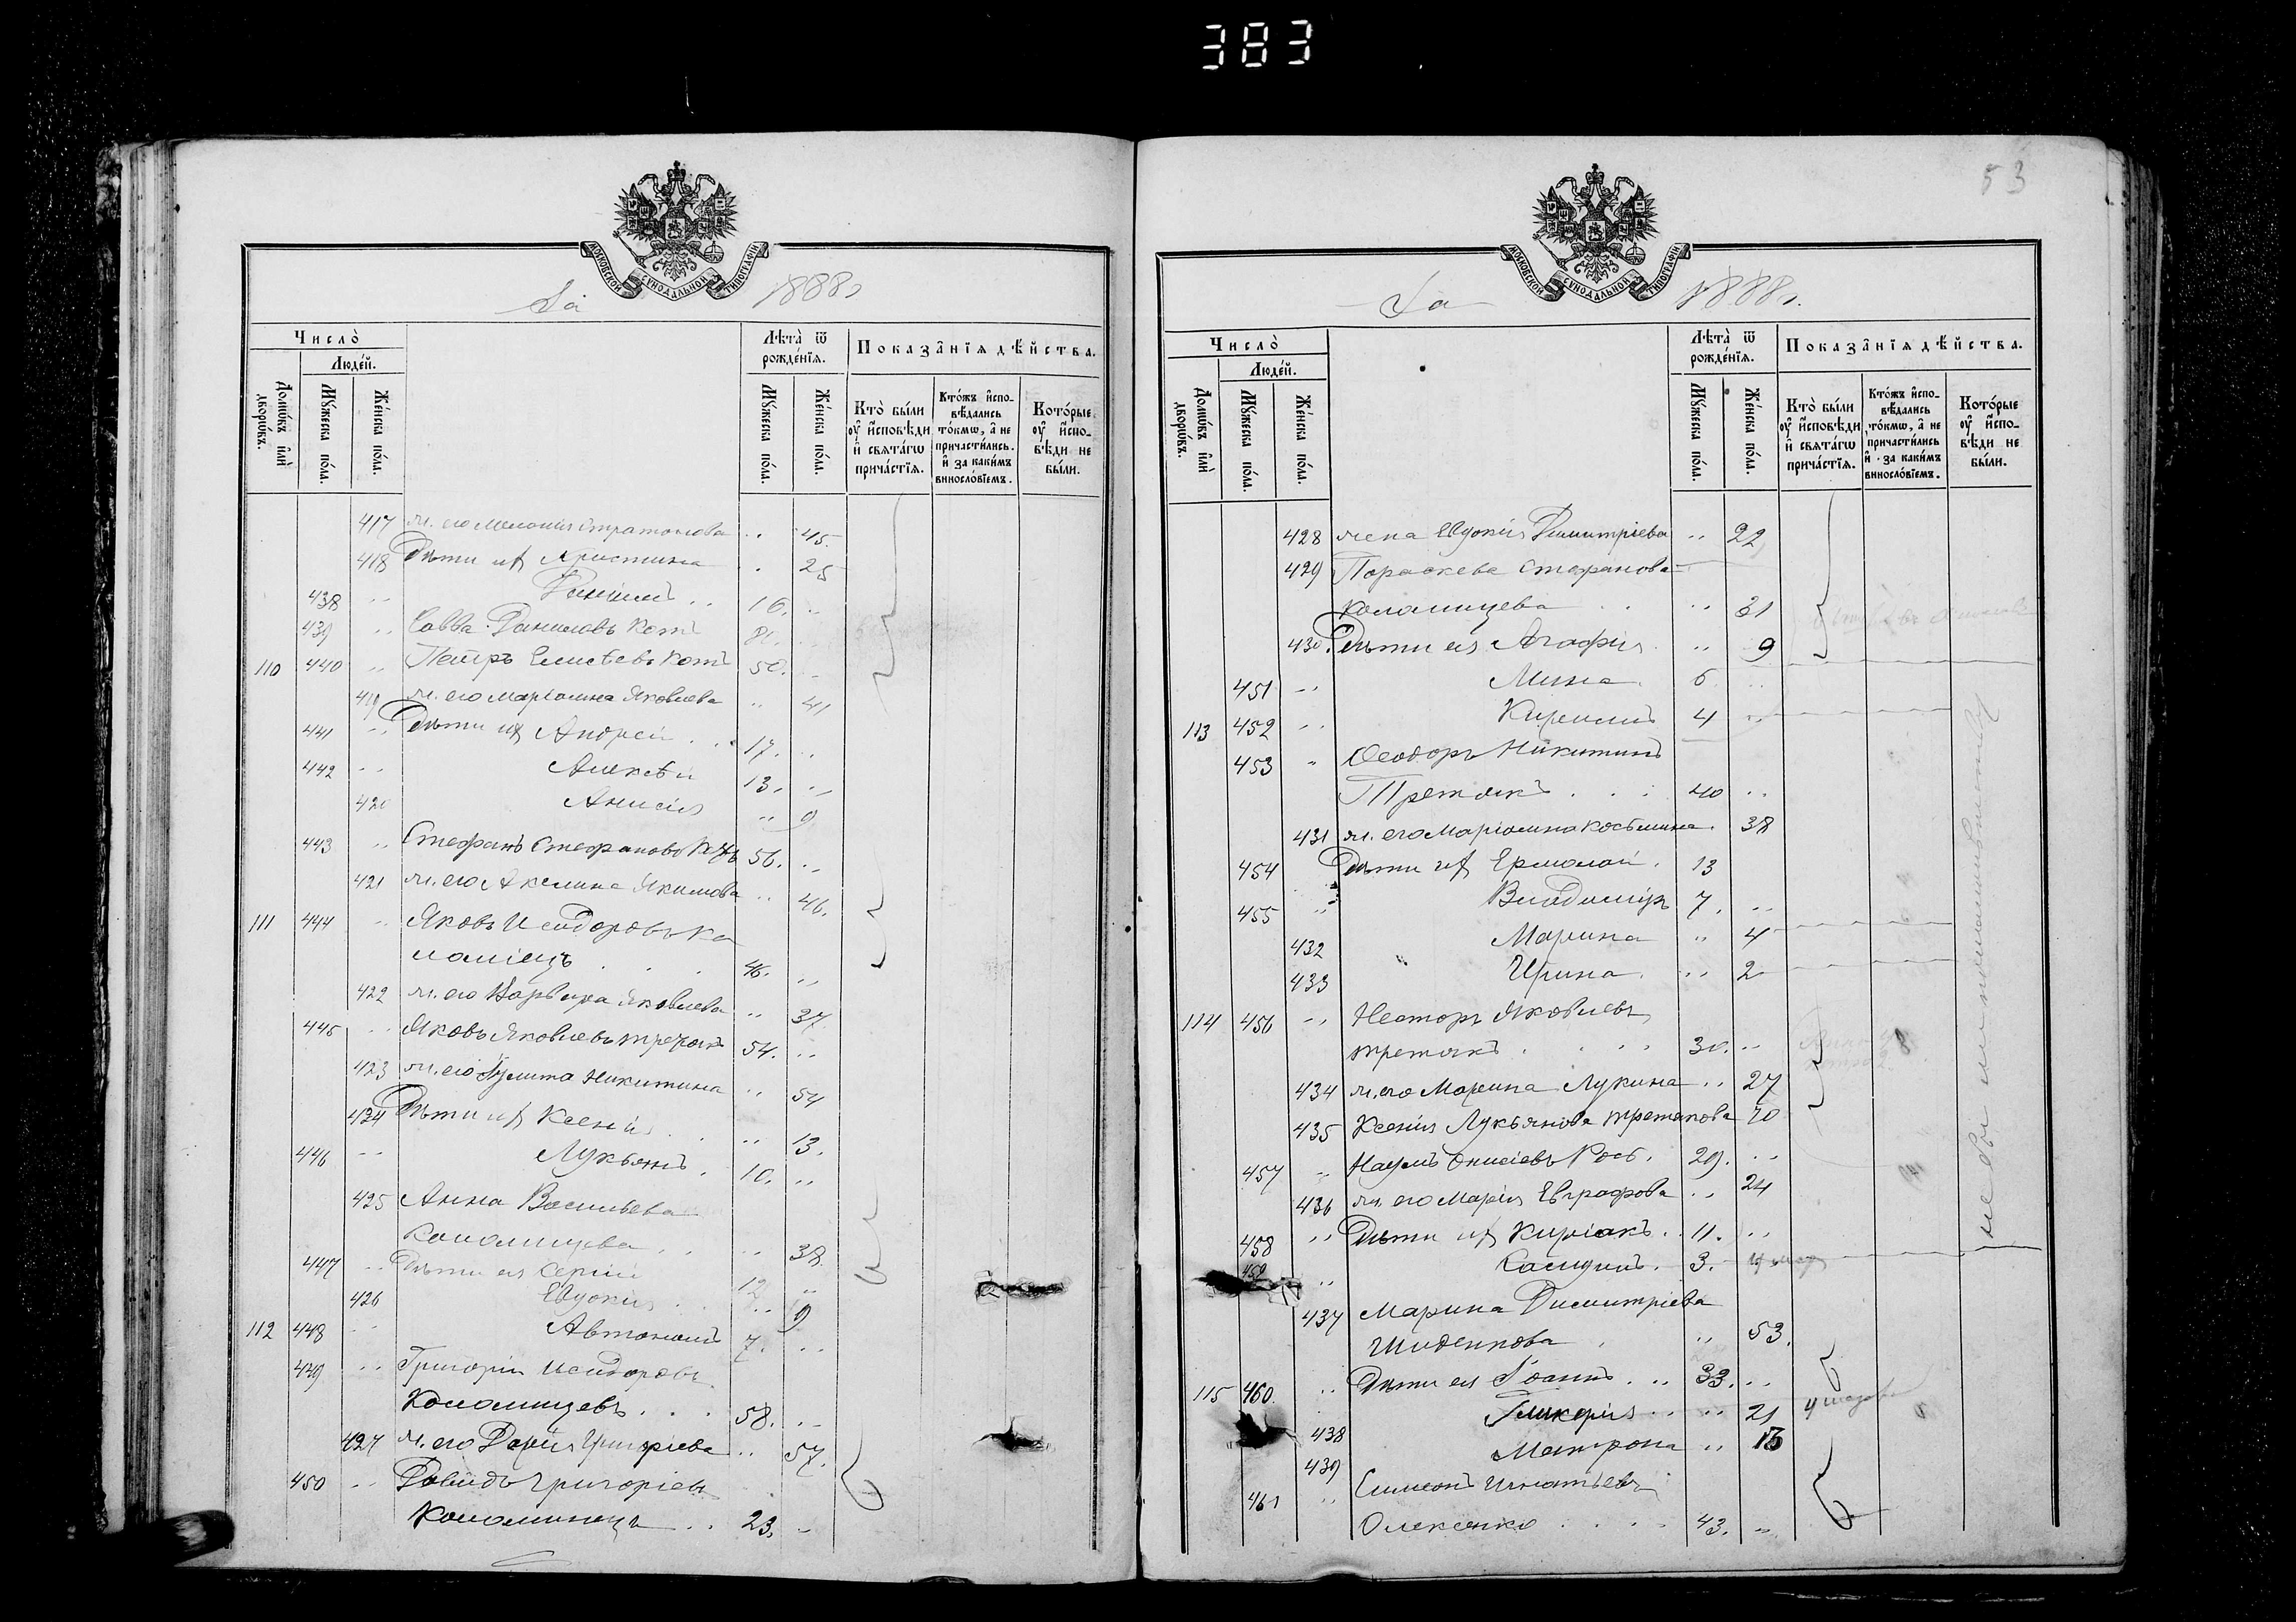 383
МОСКОВСКОЙ СѴНОДАЛЬНОЙ ТИПОГРАФІИ
За 1888 г.
Число̀
Людей.
Домѡ́въ и҆лѝ дворѡ́въ.
Мꙋ́жеска по́ла.
Же́нска по́ла.
Лѣта̀ ѿ рожде́нїѧ.
Мꙋ́жеска по́ла.
Же́нска по́ла.
Показа̑нїѧ дѣ́йства.
Кто̀ бы́ли ᲂу҆ и҆сповѣди и҆ свѧта́гѡ прича́стїѧ.
Кто́жъ и҆спо-вѣ́дались то́кмѡ, а҆ не причасти́лись. и҆ за каки́мъ винословїемъ.
Кото́рые ᲂу҆ и҆спо-вѣди не бы́ли.
417 ж. его Мелания Стратонова .. 45.
418 Дѣти их Христина . 25
438 .. Даніилъ .. 16. ..
439 .. Савва Даниловъ Котъ 81.
110 440 .. Петръ Елисѣевъ Котъ 50. ..
419 ж. его Маріамна Яковлева .. 41
441 .. Дѣти их Андрей .. 17. ..
442 .. Алексѣй 13. ..
420 Анисія .. 9
443 .. Стефанъ Стефановъ 56. ..
421 ж. его Акилина Якимова .. 46.
111 444 .. Яковъ Исидоровъ Ко
ломіецъ . . . 46. ..
422 ж. его Варвара Яковлева .. 37
445 .. Яковъ Яковлевъ Третякъ 54. ..
423 ж. его Іулита Никитина .. 54
434 Дѣти их Ксенія .. 13.
446 .. Лукьянъ . 10. ..
425 Анна Васильева
Коломицева .. .. 38
447 .. Дѣти ея Сергій 12 ..
426 Евдокия .. 9
112 448 .. Автономъ 7. ..
449 .. Григорій Исидоровъ
Коломицевъ . . . 58. ..
427 ж. его Дарія Григоріева .. 57.
450 .. Давидъ Григоріевъ
Коломицевъ .. 23. ..
53
МОСКОВСКОЙ СѴНОДАЛЬНОЙ ТИПОГРАФІИ
За 1888 г.
Число̀
Людей.
Домѡ́въ и҆лѝ дворѡ́въ.
Мꙋ́жеска по́ла.
Же́нска по́ла.
Лѣта̀ ѿ рожде́нїѧ.
Мꙋ́жеска по́ла.
Же́нска по́ла.
Показа̑нїѧ дѣ́йства.
Кто̀ бы́ли ᲂу҆ и҆сповѣди и҆ свѧта́гѡ прича́стїѧ.
Кто́жъ и҆спо-вѣ́дались то́кмѡ, а҆ не причасти́лись и҆ за каки́мъ винословїемъ.
Кото́рые ᲂу҆ и҆спо-вѣди не бы́ли.
428 жена Евдокія Димитріева .. 22
429 Параскева Стефанова
Коломицева . .. 31
430 Дѣти ея Агафія .. 9
451 .. Мина 6 ..
113 452 .. Кириллъ 4 ..
453 .. Ѳеодоръ Никитинъ
Третякъ . . . 40 ..
431 ж. его Маріамна Косьмина. 38
454 Дѣти их Ермолай . 13
455 .. Владимиръ 7. ..
432 Марина .. 4
433 Ирина .. 2
114 456 .. Несторъ Яковлевъ
Третякъ . . . . 30. ..
434 ж. его Марина Лукина .. 27
435 Ксенія Лукьянова Третякова 70
457 .. Наумъ 29. ..
436 ж. его Марія Евграфова .. 24
458 .. Дѣти их Киріакъ . 11. ..
459 .. 3.
437 Марина Димитріева
Шиденкова . .. 53.
115 460. .. Дѣти ея Іоаннъ . .. 33. ..
438 Гликерія .. .. 21
439 Матрона .. 13
461 .. Симеонъ Игнатьевъ
Олексенко . . . . 43. ..